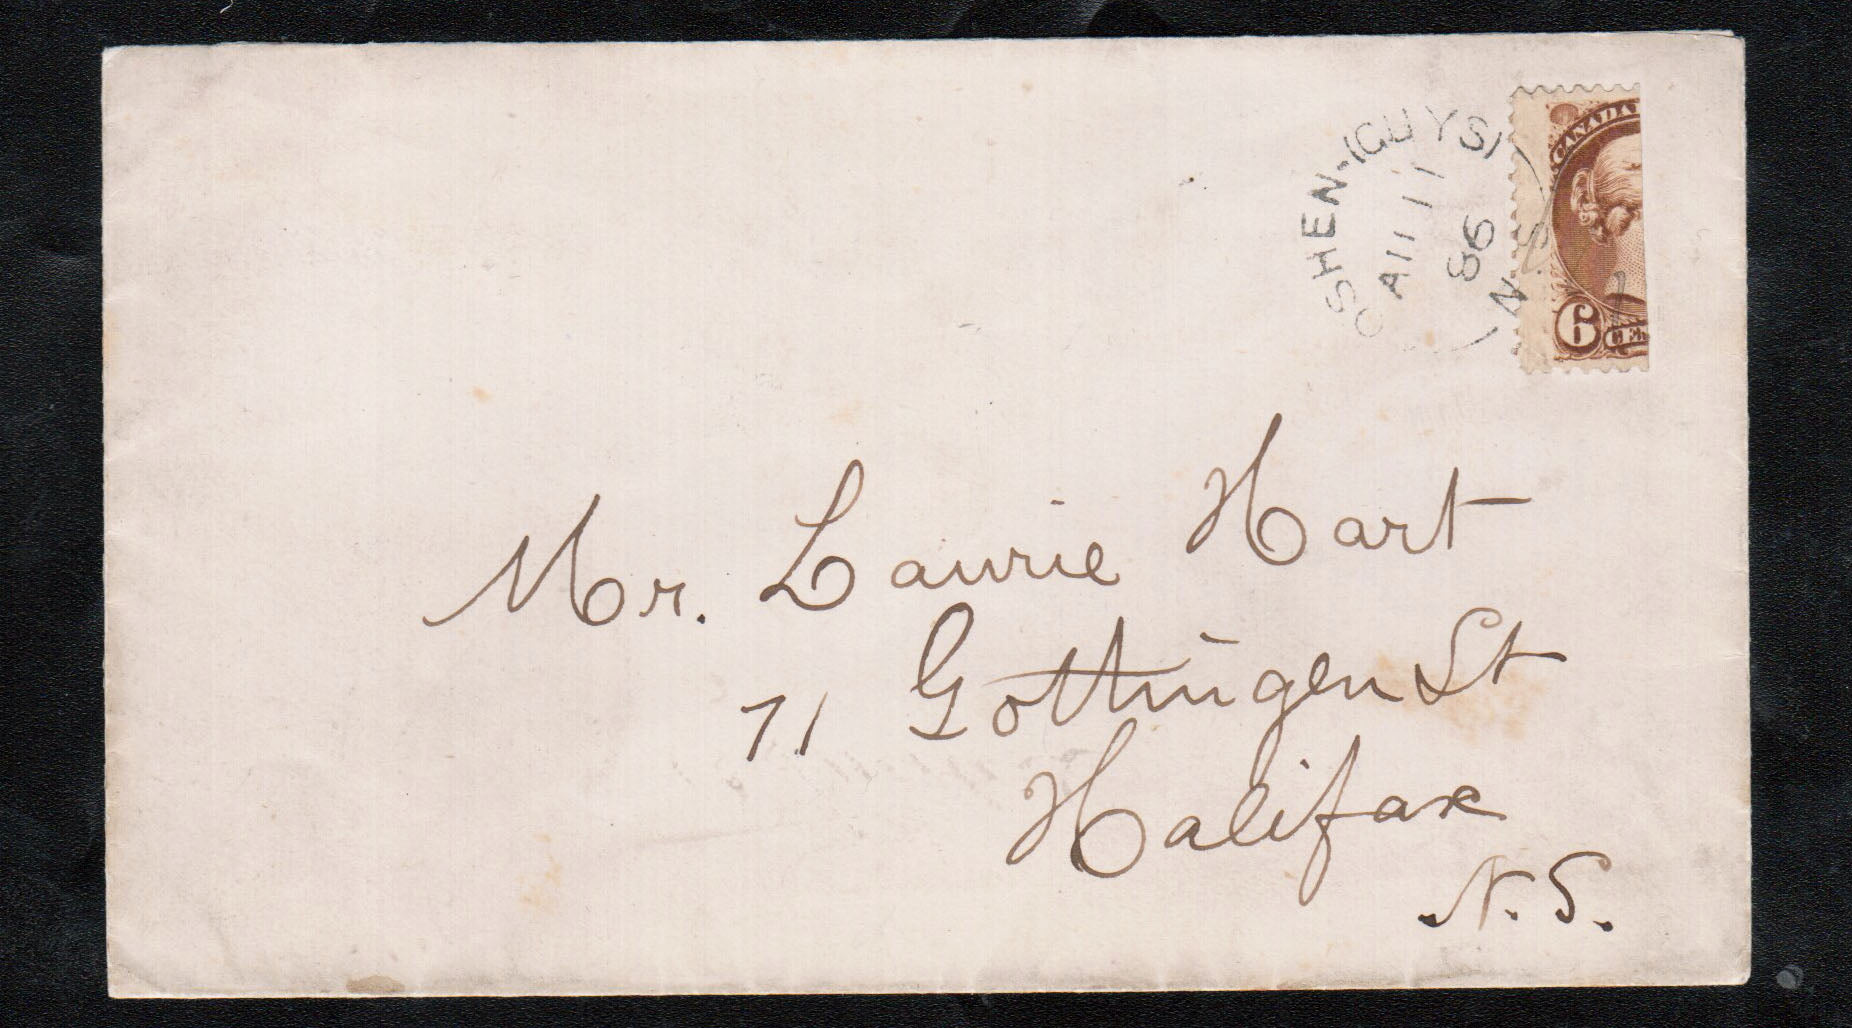 OSHEN-(GUYS)
AU 11
86
N.S.
CANADA
6
Mr. Laurie Hart
71 Gottingen St
Halifax
N.S.